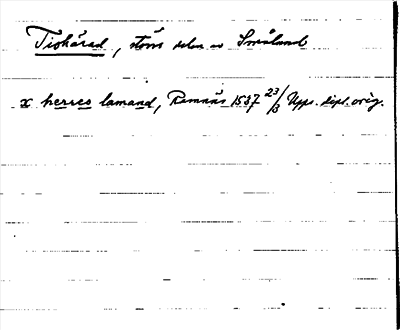 Tiohärad, störs delen av Småland
x herres lamand, Remnäs 1587 23/3 Upps. dipl. orig.